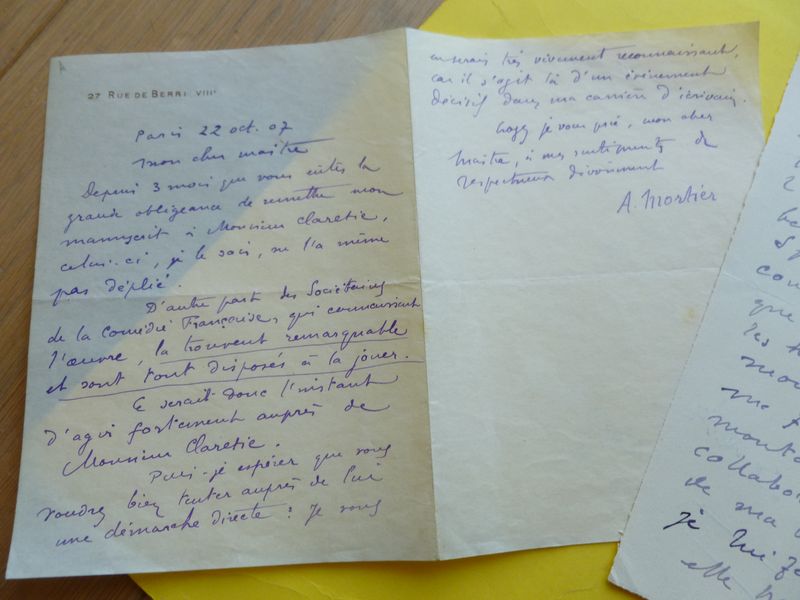 27 RUE DE BERRI VIIIe
Paris 22 oct. 07
Mon cher maître
Depuis 3 mois que vous eûtes la
grande obligeance de remettre mon
manuscrit à Monsieur Claretie,
celui-ci, je le sais, ne l'a même
pas déplié.
D'autre part des Sociétaires
de la Comédie Française, qui connaissent
l'œuvre, la trouvent remarquable
et sont tout disposés à la jouer.
Ce serait donc l'instant
d'agir fortement auprès de
Monsieur Claretie.
Puis-je espérer que vous
voudrez bien tenter auprès de lui
une démarche directe ? Je vous
en serais très vivement reconnaissant,
car il s'agit là d'un événement
décisif dans ma carrière d'écrivain.
Croyez je vous prie, mon cher
Maître, à mes sentiments de
respectueux dévouement
A. Mortier
que
les
me
monta
collabo
de ma
je
elle